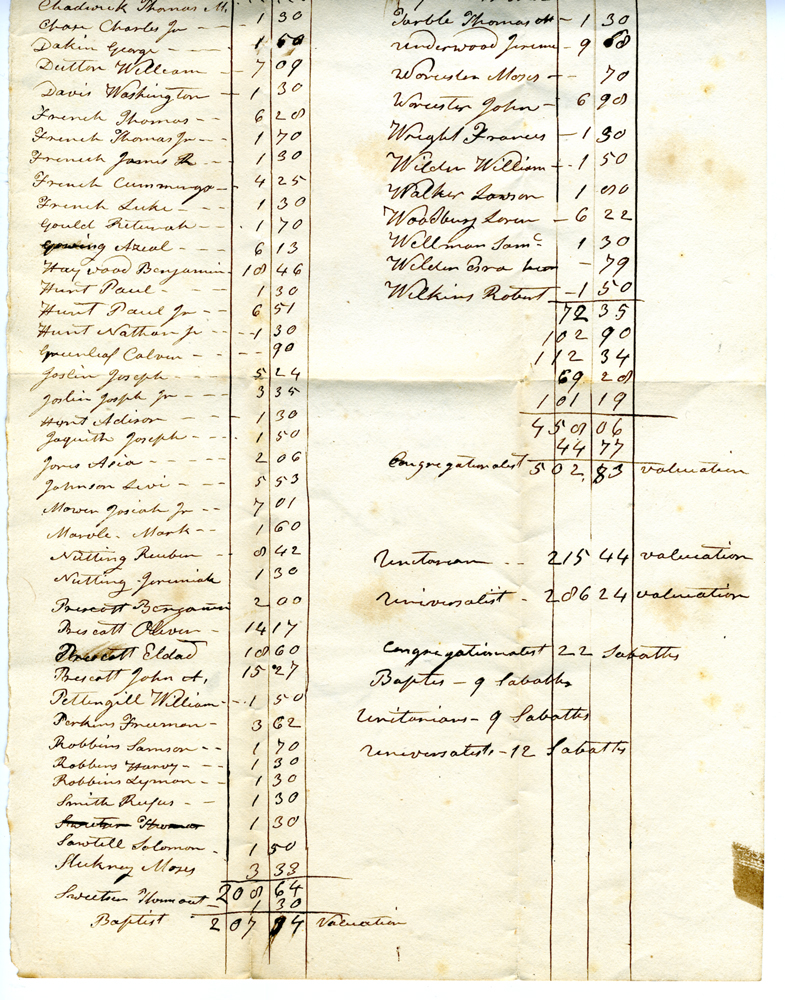 Chadwick Thomas M. 1 30
Chase Charles Jr
Dakin George - - - 1 60
Dutton William - 7 09
Davis Washington - 1 30
French Thomas - - 6 28
French Thomas Jr - - 1 70
French James - - 1 30
French Cummings - 4 25
French Luke - - 1 30
Gould - - 1 70
Gowing Azeal - - - 6 13
Haywood Benjamin - 18 46
Hunt Paul - - 1 30
Hunt Paul Jr - - 6 51
Hunt Nathan Jr - - 1 30
Greenleaf Calvin - - - - 90
Joslin Joseph - - - - 5 24
Joslin Joseph Jr - - - 3 35
Hunt Adison - - - 1 30
Jaquith Joseph - - - 1 50
Jones Asia - - - - 2 06
Johnson Levi - - - 5 53
Mower Josiah Jr - - 7 01
Marvle Mark - - 1 60
Nutting Reuben - - 8 42
Nutting Jeremiah 1 30
Prescott Benjamin 2 00
Prescott Oliver - 14 17
Prescott Eldad 18 60
Prescott John A, 15 27
Pettengill William - - 1 50
Perkins Freeman - 3 62
Robbins Samson - - 1 70
Robbins Harvy - - - 1 30
Robbins Lyman - - 1 30
Smith Rufus - - 1 30
Sweetser 1 30
Sawtell Solomon - 1 50
Stickney Moses 3 33
208 64
Sweetser 1 30
Baptist 207 valuation
Tarble Thomas H - 1 30
Underwood - 9 68
Worcester Moses - - 70
Worcester John - 6 98
Wright Frances - 1 30
Wilder William - - 1 50
Walker Lawson 1 80
Woodbury Loren - 6 22
Wellman Saml 1 30
Wilder Esra - 79
Wilkins Robert - 1 50
72 35
102 90
112 34
69 28
101 19
458 06
44 77
Congregationalist 502. 83 valuation
Unitarian - - 215 44 valuation
Universalist - 286 24 valuation
Congregationalist 22 Sabaths
Baptes - 9 Sabaths
Unitarians - 9 Sabaths
Universalists - 12 Sabaths